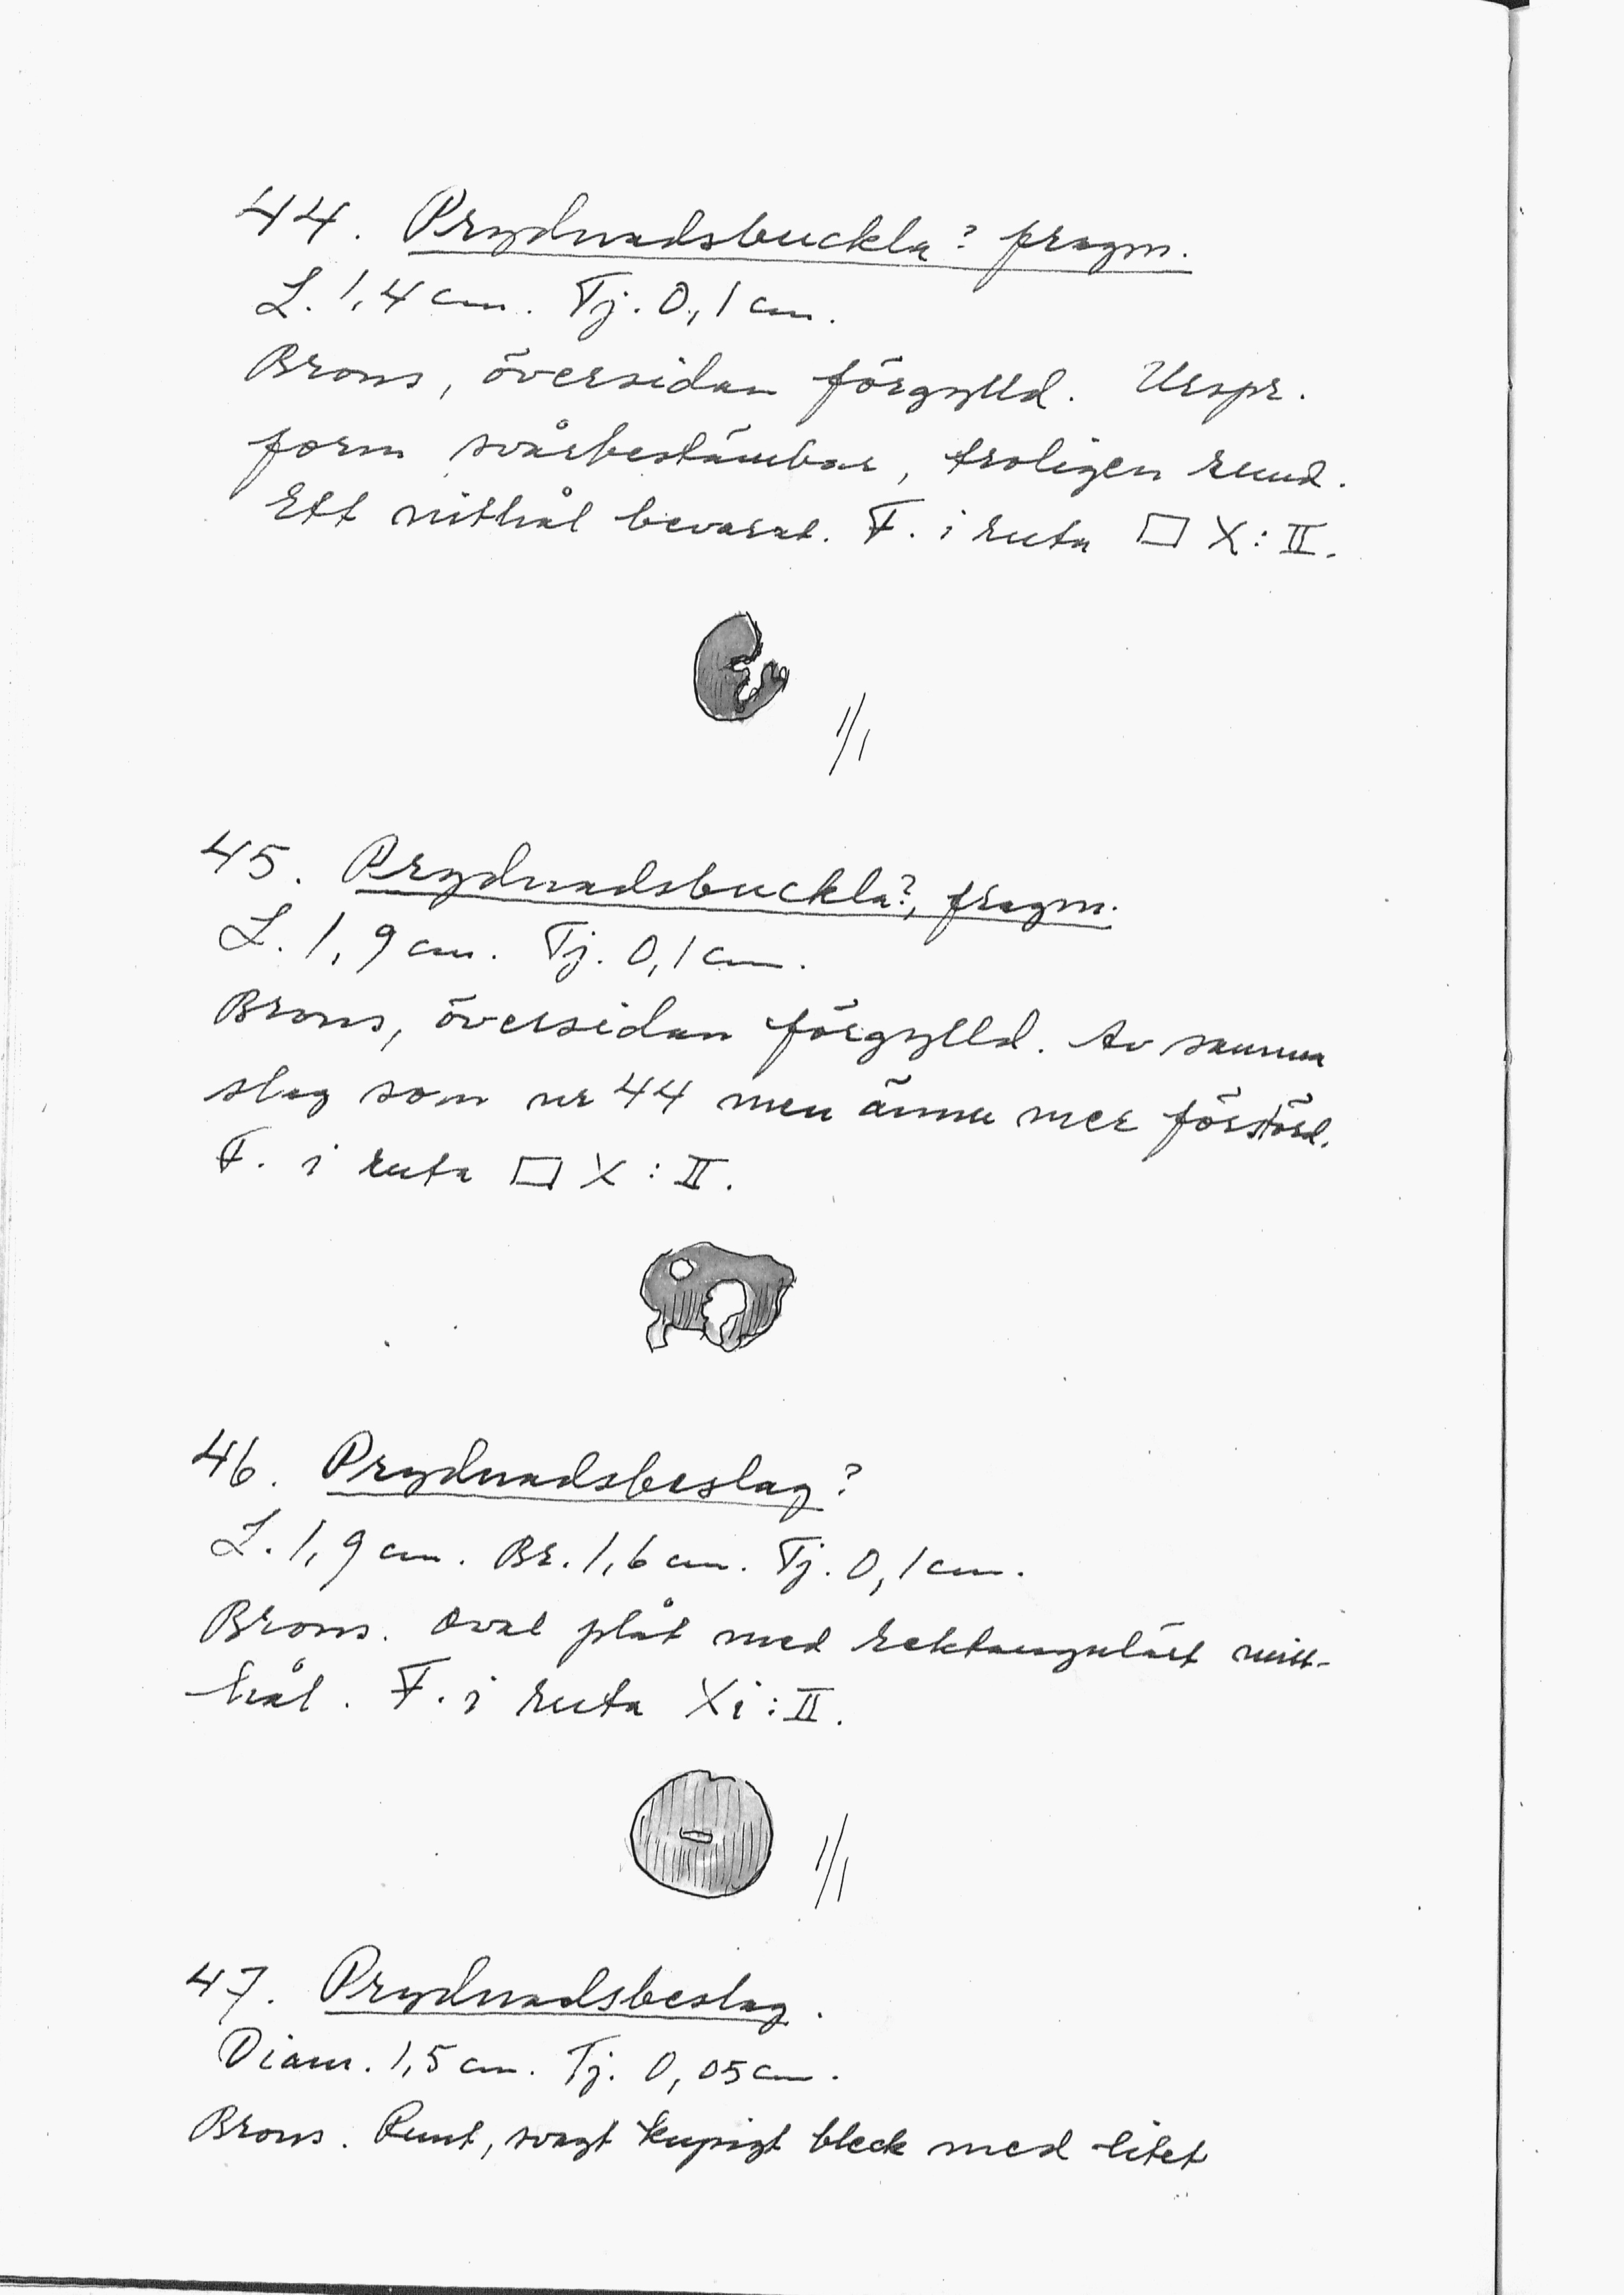 44. Prydnadsbuckla? fragm.
L. 1,4 cm. Tj. 0,1 cm.
Brons, översidan förgylld. Urspr.
form svårbestämbar, troligen rund.
Ett nithål bevarat. F. i ruta □ X:II.
1/1
45. Prydnadsbuckla?, fragm.
L. 1,9 cm. Tj. 0,1 cm.
Brons, översidan förgylld. Av samma
slag som nr 44 men ännu mer förstörd.
F. i ruta □ X:II.
46. Prydnadsbeslag?
L. 1,9 cm. Br. 1,6 cm. Tj. 0,1 cm.
Brons. Oval plåt med rektangulärt mitt-
hål. F. i ruta Xi:II.
1/1
47. Prydnadsbeslag.
Diam. 1,5 cm. Tj. 0,05 cm.
Brons. Runt, svagt kupigt bleck med litet